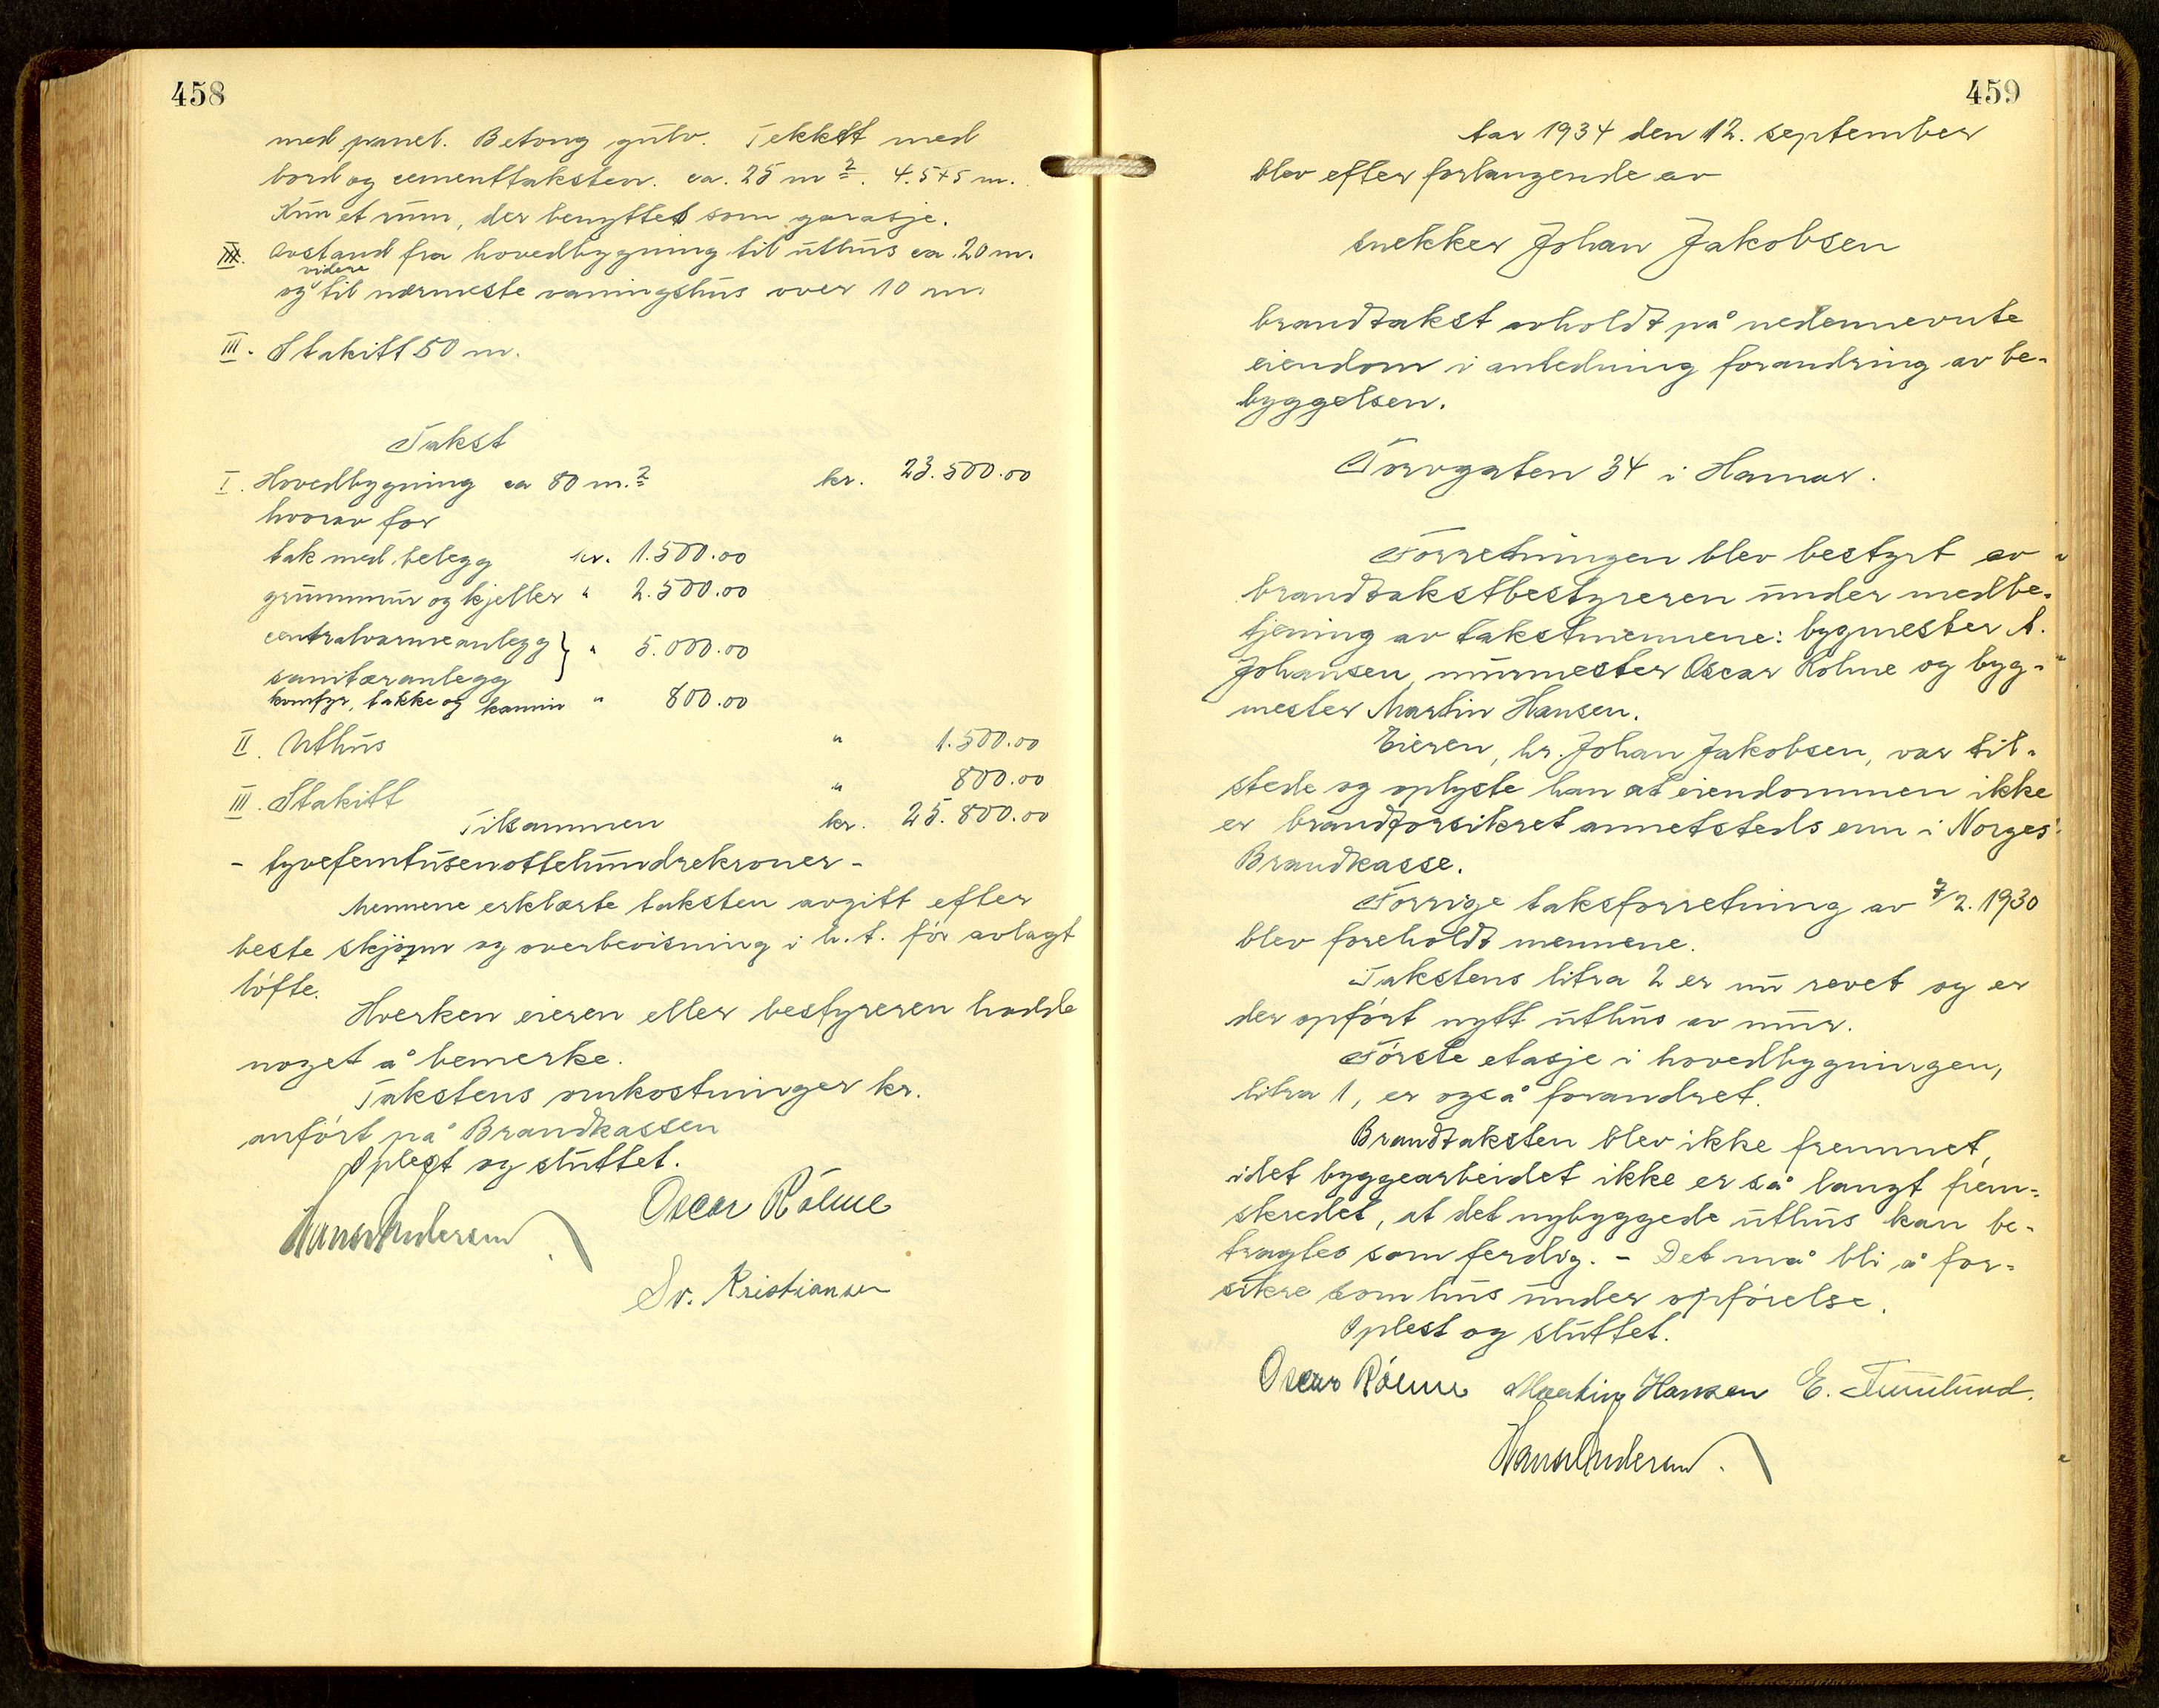 458
med panel. Betong gulv. Tekket med
bord og cementtaksten. ca. 25 m². 4.5+5 m.
Kun et rum, der benyttes som garasje.
Avstand fra hovedbygning til uthus ca. 20 m.
og videre til nærmeste vaningshus over 10 m.
III. Stakitt 50 m.
Takst
I. Hovedbygning ca 80 m.² kr. 23.500.00
hvorav for
tak med belegg kr. 1.500.00
grunnmur og kjeller " 2.500.00
centralvarmeanlegg } " 5.000.00
sanitæranlegg
komfyr, takke og kamin " 800.00
II. Uthus " 1.500.00
III. Stakitt " 800.00
Tilsammen kr. 25.800.00
- tyvefemtusenottehundrekroner -
Mennene erklærte taksten avgitt efter
beste skjønn og overbevisning i h.t. før avlagt
løfte.
Hverken eieren eller bestyreren hadde
noget å bemerke.
Takstens omkostninger kr.
anført på Brandkassen
Oplest og sluttet.
Hans Andersen Oscar Rólme
Sv. Kristiansen
459
Aar 1934 den 12. september
blev efter forlangende av
snekker Johan Jakobsen
brandtakst avholdt på nedennevnte
eiendom i anledning forandring av be-
byggelsen.
Torvgaten 34 i Hamar.
Forretningen blev bestyrt av
brandtakstbestyreren under medbe-
tjening av takstmennene: bygmester A.
Johansen, murmester Oscar Rólme og byg-
mester Martin Hansen.
Eieren, hr. Johan Jakobsen, var til-
stede og oplyste han at eiendommen ikke
er brandforsikret annetsteds enn i Norges
Brandkasse.
Forrige taksforretning av 7/2. 1930
blev foreholdt mennene.
Takstens litra 2 er nu revet og er
der opført nytt uthus av mur.
Første etasje i hovedbygningen,
litra 1, er også forandret.
Brandtaksten blev ikke fremmet,
idet byggearbeidet ikke er så langt frem-
skredet, at det nybyggede uthus kan be-
tragtes som ferdig. - Det må bli å for-
sikre som hus under opførelse.
Oplest og sluttet.
Oscar Rólme Martin Hansen E.
Hans Andersen.